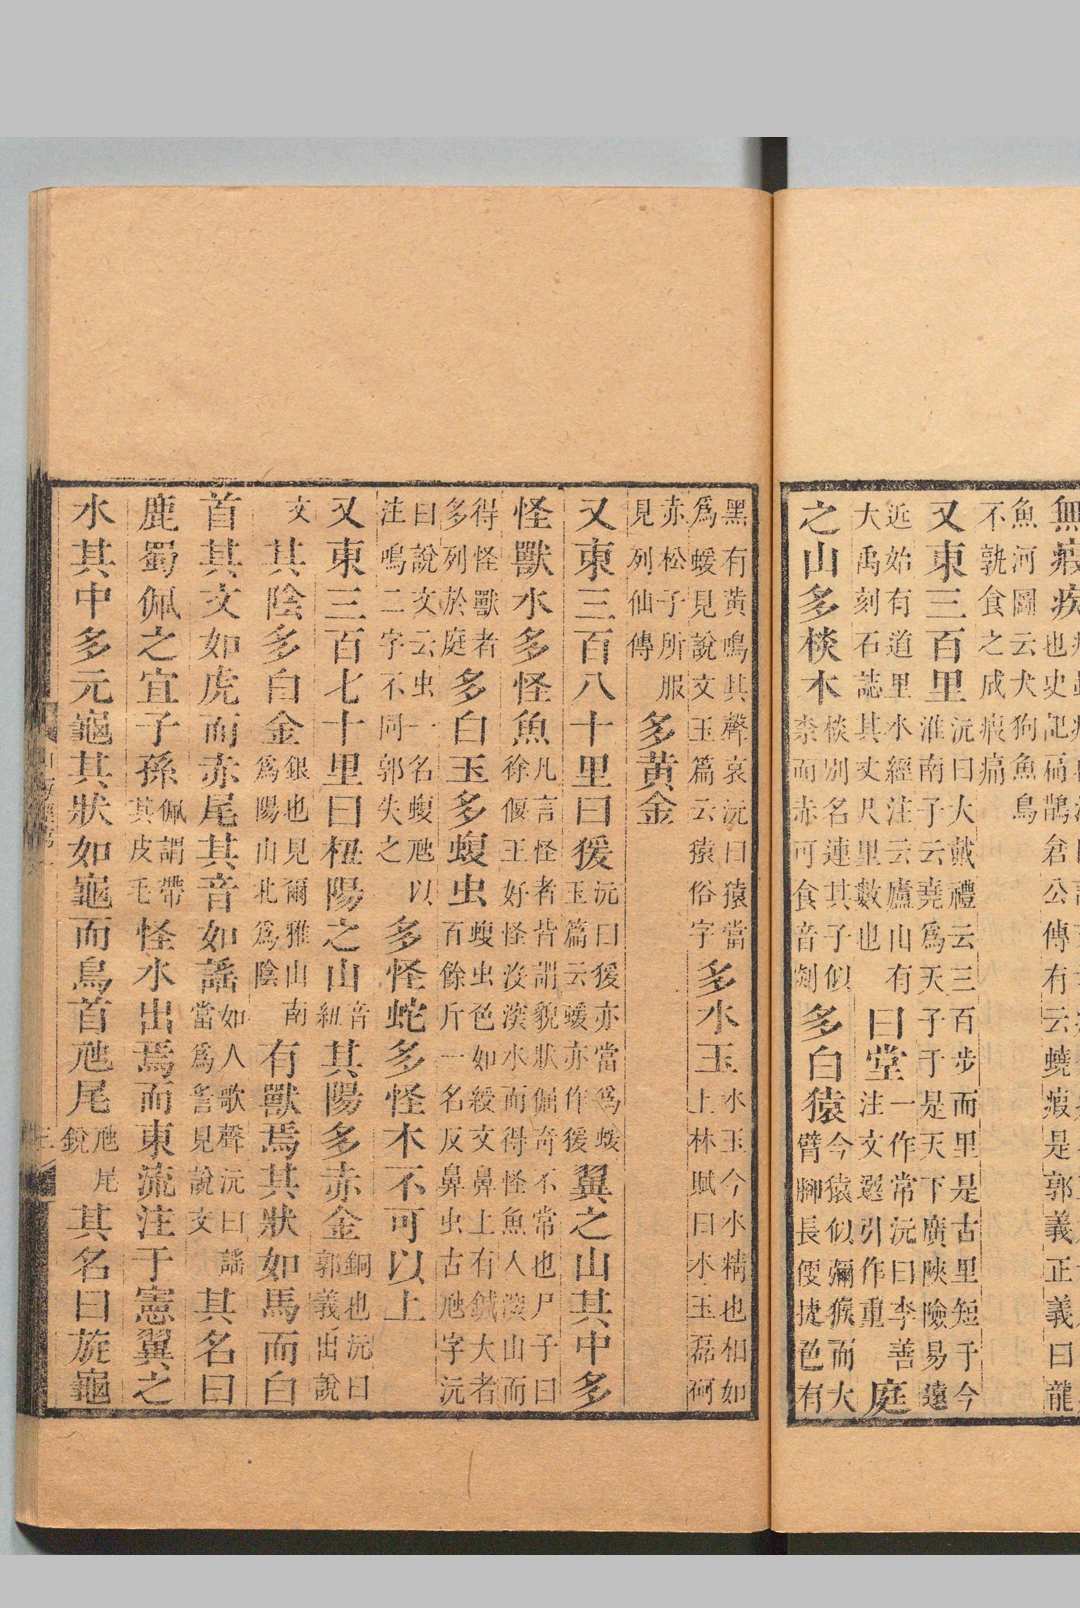 無瘕疾
也史記扁鵲倉公傳有云蟯瘕是郭義正義曰龍
魚河圖云犬狗魚鳥
不孰食之成瘕痛
又東三百里
沅曰大戴禮云三百步而里是古里短于今
淮南子云堯爲天子于是天下廣陝險易遠
近始有道里水經注云廬山有
大禹刻石誌其丈尺里數也
曰堂
一作常沅曰李善
注文選引作重
庭
之山多棪木
棪別名連其子似
柰而赤可食音剡
多白猿
今猿似獼猴而大
臂脚長便捷色有
黑有黃鳴其聲哀沅曰猿當
爲蝯見說文玉篇云猿俗字
多水玉
水玉今水精也相如
上林賦曰水玉磊砢
赤松子所服
見列仙傳
多黃金
又東三百八十里曰猨
沅曰猨亦當爲蝯
玉篇云蝯亦作猨
翼之山其中多
怪獸水多怪魚
凡言怪者皆謂貌狀倔奇不常也尸子曰
徐偃王好怪沒深水而得怪魚入深山而
得怪獸者
多列於庭
多白玉多蝮虫
蝮虫色如綬文鼻上有鍼大者
百餘斤一名反鼻虫古虺字沅
曰說文云虫一名蝮虺以
注鳴二字不同郭失之
多怪蛇多怪木不可以上
又東三百七十里曰杻陽之山
音
紐
其陽多赤金
銅也沅曰
郭義出說
文
其陰多白金
銀也見爾雅山南
爲陽山北爲陰
有獸焉其狀如馬而白
首其文如虎而赤尾其音如謠
如人歌聲沅曰謠
當爲䚻見說文
其名曰
鹿蜀佩之宜子孫
佩謂帶
其皮毛
怪水出焉而東流注于憲翼之
水其中多元龜其狀如龜而鳥首虺尾
虺尾
銳
其名曰旋龜
三